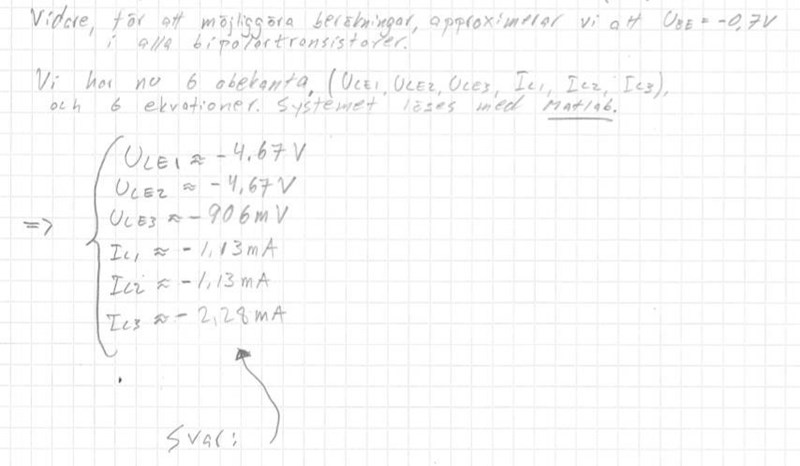 Vidare, för att möjliggöra beräkningar, approximerar vi att U_BE = -0,7V
i alla bipolärtransistorer.
Vi har nu 6 obekanta, (U_CE1, U_CE2, U_CE3, I_C1, I_C2, I_C3),
och 6 ekvationer. Systemet löses med Matlab.
U_CE1 ≈ -4,67 V
U_CE2 ≈ -4,67 V
=> U_CE3 ≈ -906 mV
I_C1 ≈ -1,13 mA
I_C2 ≈ -1,13 mA
I_C3 ≈ -2,28 mA
Svar: